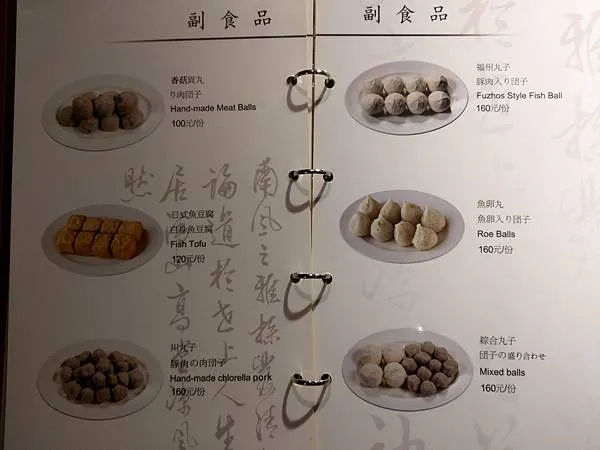 副食品
香菇貢丸
り肉団子
Hand-made Meat Balls
100元/份
日式魚豆腐
白身魚豆腐
Fish Tofu
120元/份
川丸子
豚肉の肉団子
Hand-made chlorella pork
160元/份
副食品
福州丸子
豚肉入り団子
Fuzhos Style Fish Ball
160元/份
魚卵丸
魚卵入り団子
Roe Balls
160元/份
綜合丸子
団子の盛り合わせ
Mixed balls
160元/份